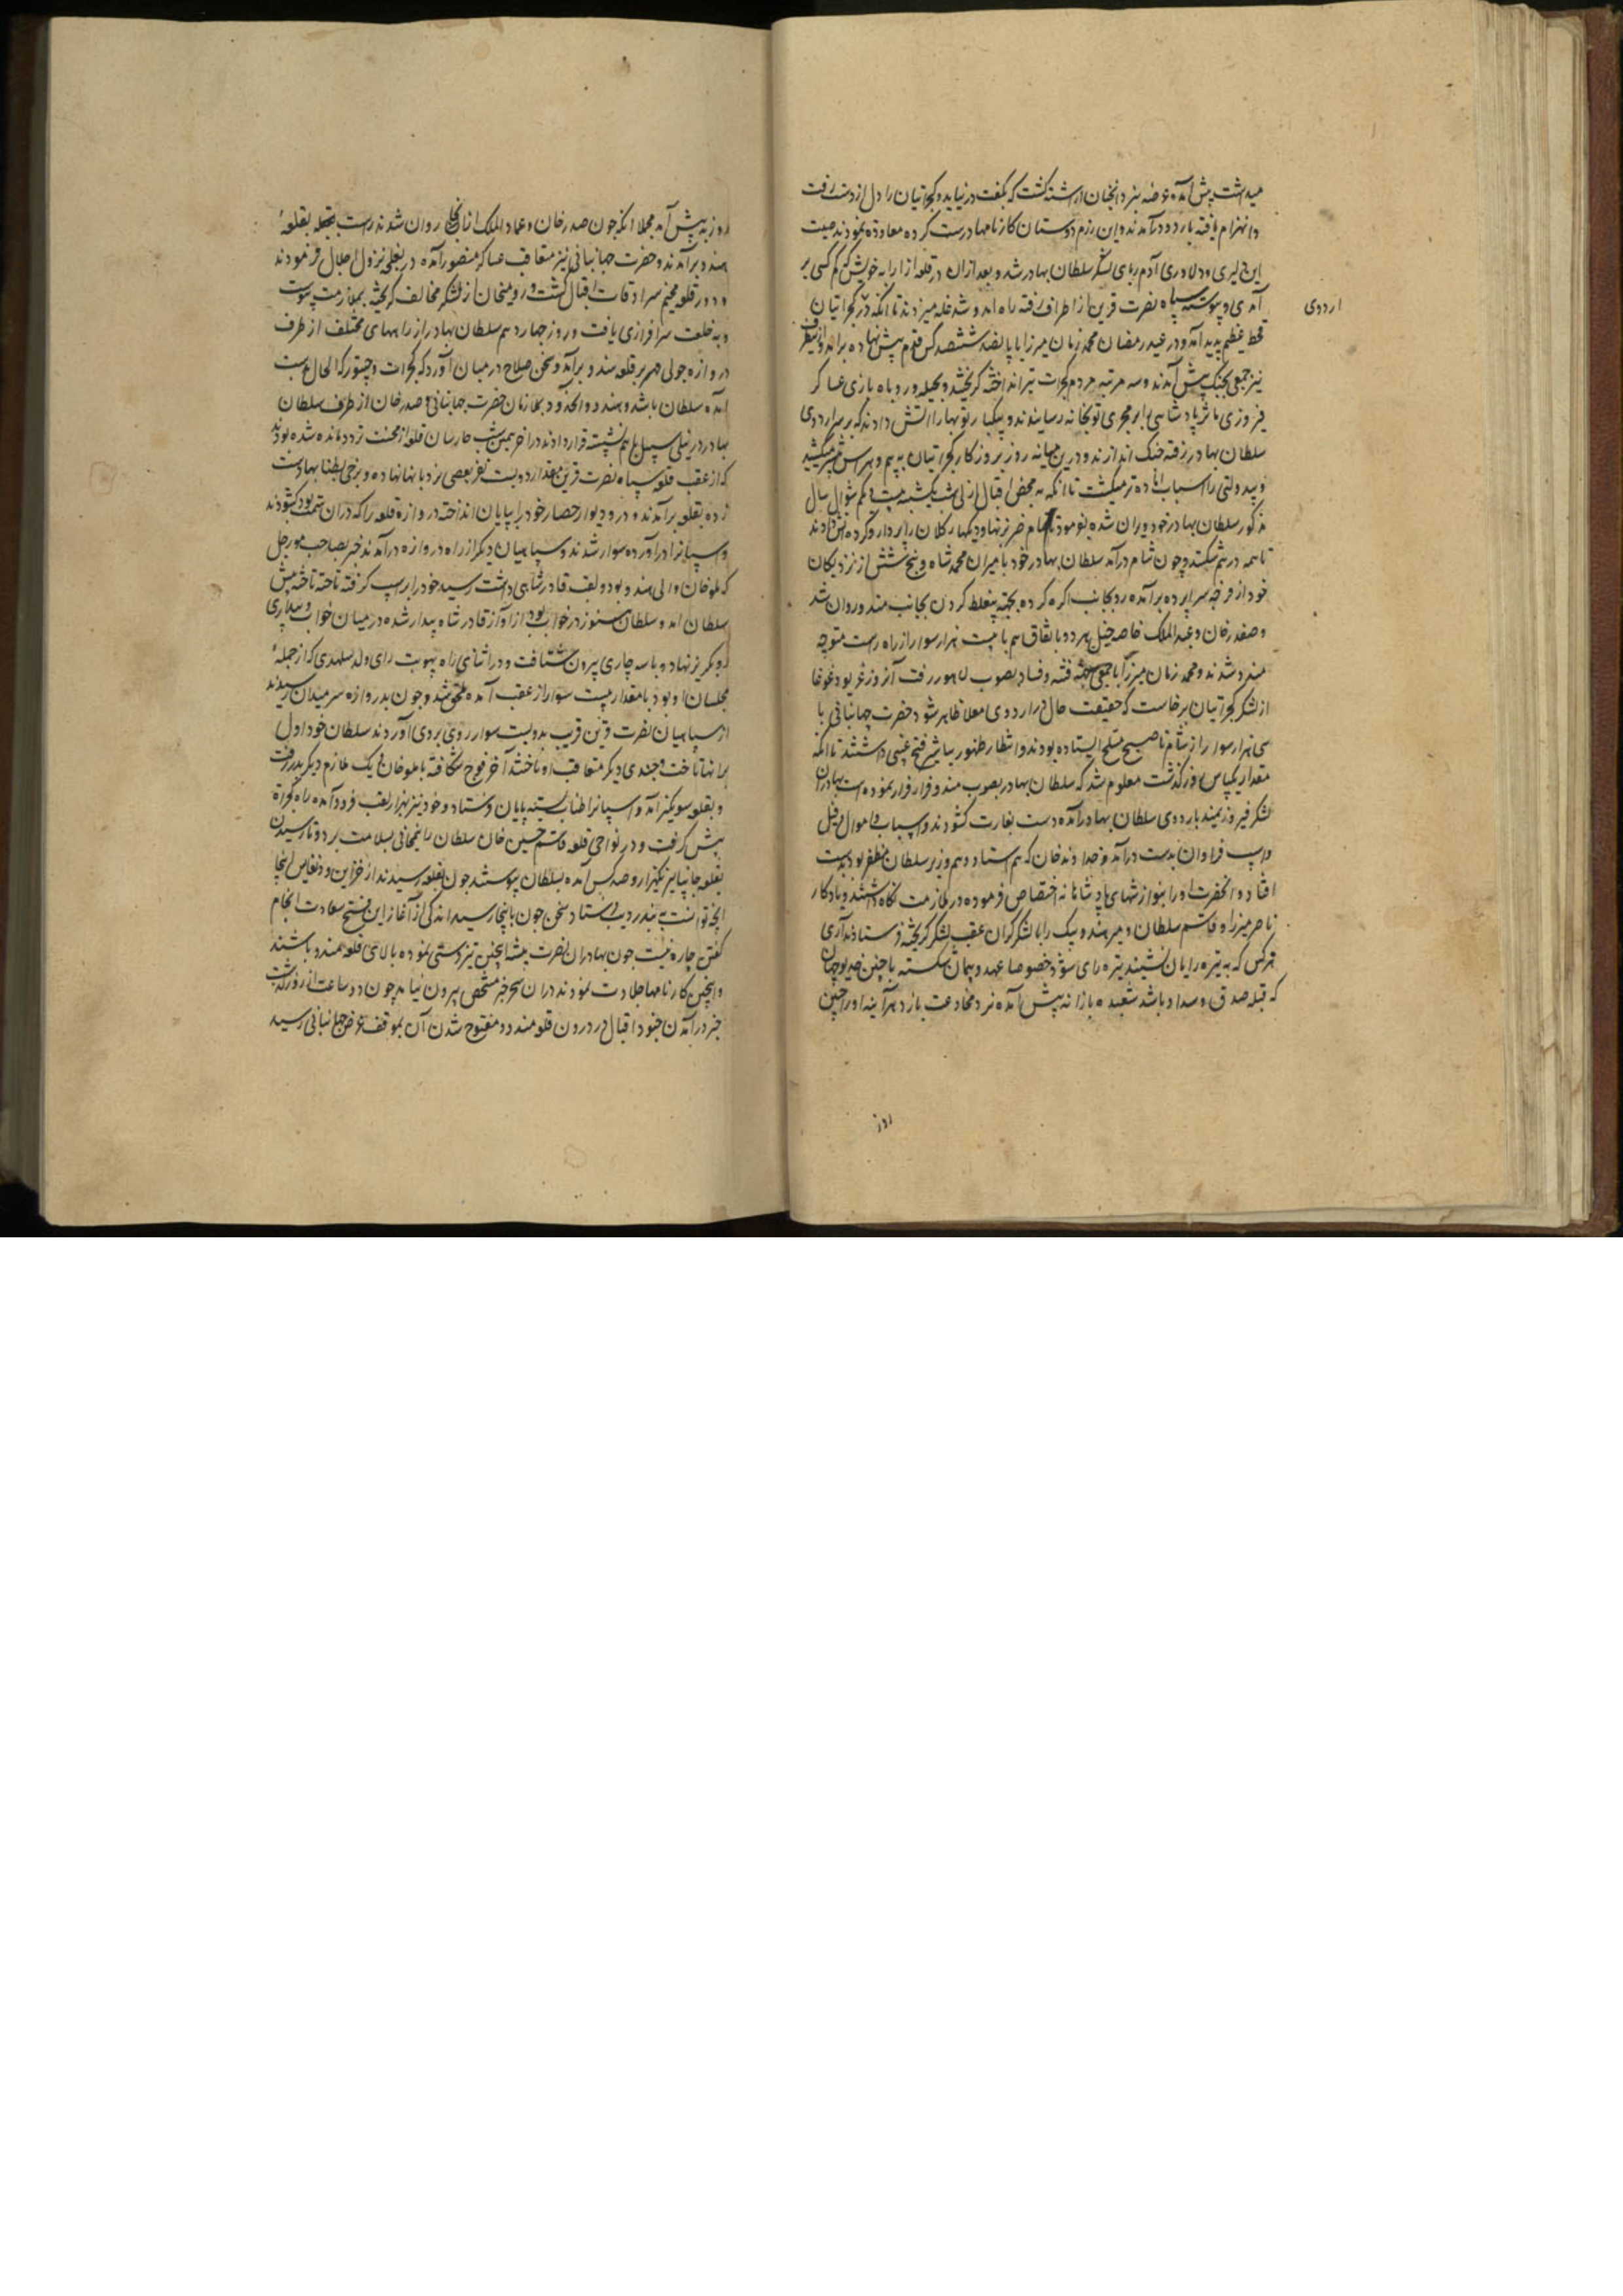 میداشت پیش آمده عرضه نبرد انچنان اراسته کشت که بکفت در نیاید و کجراتیان را دل از دست رفت
و انهزام یافته باردو درآمدند و این رزم دوستان کارنامها درست کرده معاودة نمودند صیت
این دلیری و دلاوری آدم ربای لشکر سلطان بهادر شد و بعد ازان در قلعه ارابه خویش کم کسی بر
آمدی و پیوسته سپاه نصرت قرین از اطراف رفته راه امد و شد غله میزدند تا انکه در کجراتیان
اردوی
قحط عظیم پدید آمد و در عید رمضان محمد زمان میرزا با پانصد ششصد کس قدم پیش نهاده برامد و ازینطرف
نیز جمعی بجنک پیش آمدند و سه مرتبه مردم کجرات تیر انداخته کریختند و بحیله و روباه بازی عساکر
فیروزی ماثر پادشاهی برابر مجری توپخانه رسانیدند و یکبار توپها را اتش دادند که بر سر اردوی
سلطان بهادر رفته جنک اندازند و درین میانه روز بروز کار کجراتیان به بیم و هراس میکشید
و بیدولتی را اسباب اماده تر میکشت تا انکه به محض اقبال ازلی شب یکشنبه بیست و یکم شوال سال
مذکور سلطان بهادر خود ویران شده بفرمود تا تمام ضربزنها و دیکهای کلان را پر دارو کرده اتش دادند
تا همه درهم شکستند و چون شام درآمد سلطان بهادر خود با میران محمد شاه و پنج شش از نزدیکان
خود از فرجه سراپرده برآمده رو بجانب اکره کرده بجهة بغلط کردن بجانب مندو روان شد
و صفدر خان و عماد الملک خاصه خیل هر دو باتفاق هم با بیست هزار سوار از راه راست متوجه
مندو شدند و محمد زمان میرزا با جمعی بجهة فتنه و فساد بصوب لاهور رفت آن روز غریو و غوغا
از لشکر کجراتیان برخاست که حقیقت حال در اردوی معلا ظاهر نشود حضرت جهانبانی با
سی هزار سوار از شام تا صبح مسلح ایستاده بودند و انتظار ظهور تباشیر فتح غیبی داشتند تا انکه
مقدار یکپاس روز کذشت معلوم شد که سلطان بهادر بصوب مندو فرار فرار نموده است بهادران
لشکر فیروزیمند باردوی سلطان بهادر درآمده دست بغارت کشودند و اسباب و اموال و فیل
و اسپ فراوان بدست درآمد و خداوند خان که هم استاد و هم وزیر سلطان مظفر بود بدست
افتاد و انحضرت او را بنوازشهای پادشاهانه اختصاص فرموده در ملازمت نکاه داشتند و یادکار
ناصر میرزا و قاسم سلطان و میر هندو بیک را با لشکر کران عقب لشکر کریخته فرستادند آری
هرکس که به تیره رایان نشیند تیره رای شود خصوصا عهد و پیمان شکسته با چنین خدیو جهان
که قبله صدق و سداد باشد شعبده بازانه پیش آمده نرد مخادعت بازد هرآینه او را چنین
روز
روز بد پیش آید مجملا انکه چون صدر خان و عماد الملک از انجا روان شدند راست بقلعه
مندو برآمدند و حضرت جهانبانی نیز متعاقب عساکر منصور آمده در نعلچه نزول اجلال فرمودند
و دور قلعه مخیم سرادقات اقبال کشت و رومیخان از لشکر مخالف کریخته بملازمت پیوست
و به خلعت سرافرازی یافت و روز چهاردهم سلطان بهادر از راههای مختلف از طرف
دروازه جولی مهیر بر قلعه مندو برآمد و سخن صلاح درمیان آورد که کجرات و چیتور که الحال بدست
امده سلطان باشد و مندو و انحدود بملازمان حضرت جهانبانی و صدر خان از طرف سلطان
بهادر در نیلی سبیل باهم نشسته قرار دادند در اخر همین شب حارسان قلعه از محنت تردد مانده شده بودند
که از عقب قلعه سپاه نصرت قرین مقدار دویست نفر بعضی نردبانها نهاده و برخی بطنابها دست
زده بقلعه برآمدند و در و دیوار حصار خود را پایان انداخته دروازه قلعه را که دران سمت بود کشودند
و اسپانرا درآورده سوار شدند و سپاهیان دیکر از راه دروازه درآمدند خبر بصاحب مورچل
که ملو خان والی مندو بود و لقب قادر شاهی داشت رسید خود را بر اسپ کرفته تاخته تاخته پیش
سلطان امد و سلطان هنوز در خواب بود از اواز قادر شاه بیدار شده درمیان خواب و بیداری
رو بکریز نهاد و با سه چاری بیرون شتافت و در اثنای راه بهوپت رای ولد سلهدی که از جمله
مجلسان او بود با مقدار بیست سوار از عقب آمده ملحق شد و چون بدروازه سر میدان رسیدند
از سپاهیان نصرت قرین قریب بدویست سوار روی بروی آوردند سلطان خود اول
برانها تاخت و چندی دیکر متعاقب او تاختند آخر فوج شکافته با ملو خان و یک ملازم دیکر بدر رفت
و بقلعه سونکیر امد و اسپانرا طناب بسته پایان فرستاد و خود نیز بهزار تعب فرود آمده راه کجراة
پیش کرفت و در نواحی قلعه قاسم حسین خان سلطان را بسلامت برد و تا رسیدن
بقلعه جانپانیر یکهزار و صد کس آمده بسلطان پیوستند چون بقلعه رسیدند از خزاین و نفایس انجا
انچه توانست به بندر دیب فرستاد سخن چون باینجا رسید اندکی از آغاز این فتح سعادت انجام
کفتن چاره نیست چون بهادران نصرت پیشه اینچنین تیزدستی نموده بالای قلعه مندو باشند
و اینچنین کارنامها جلادت نمودند دران سحر خبر مشخص بیرون نیامد چون دو ساعت از روز کذشت
خبر درآمدن جنود اقبال در درون قلعه مندو و مفتوح شدن آن بموقف عرض جهانبانی رسید